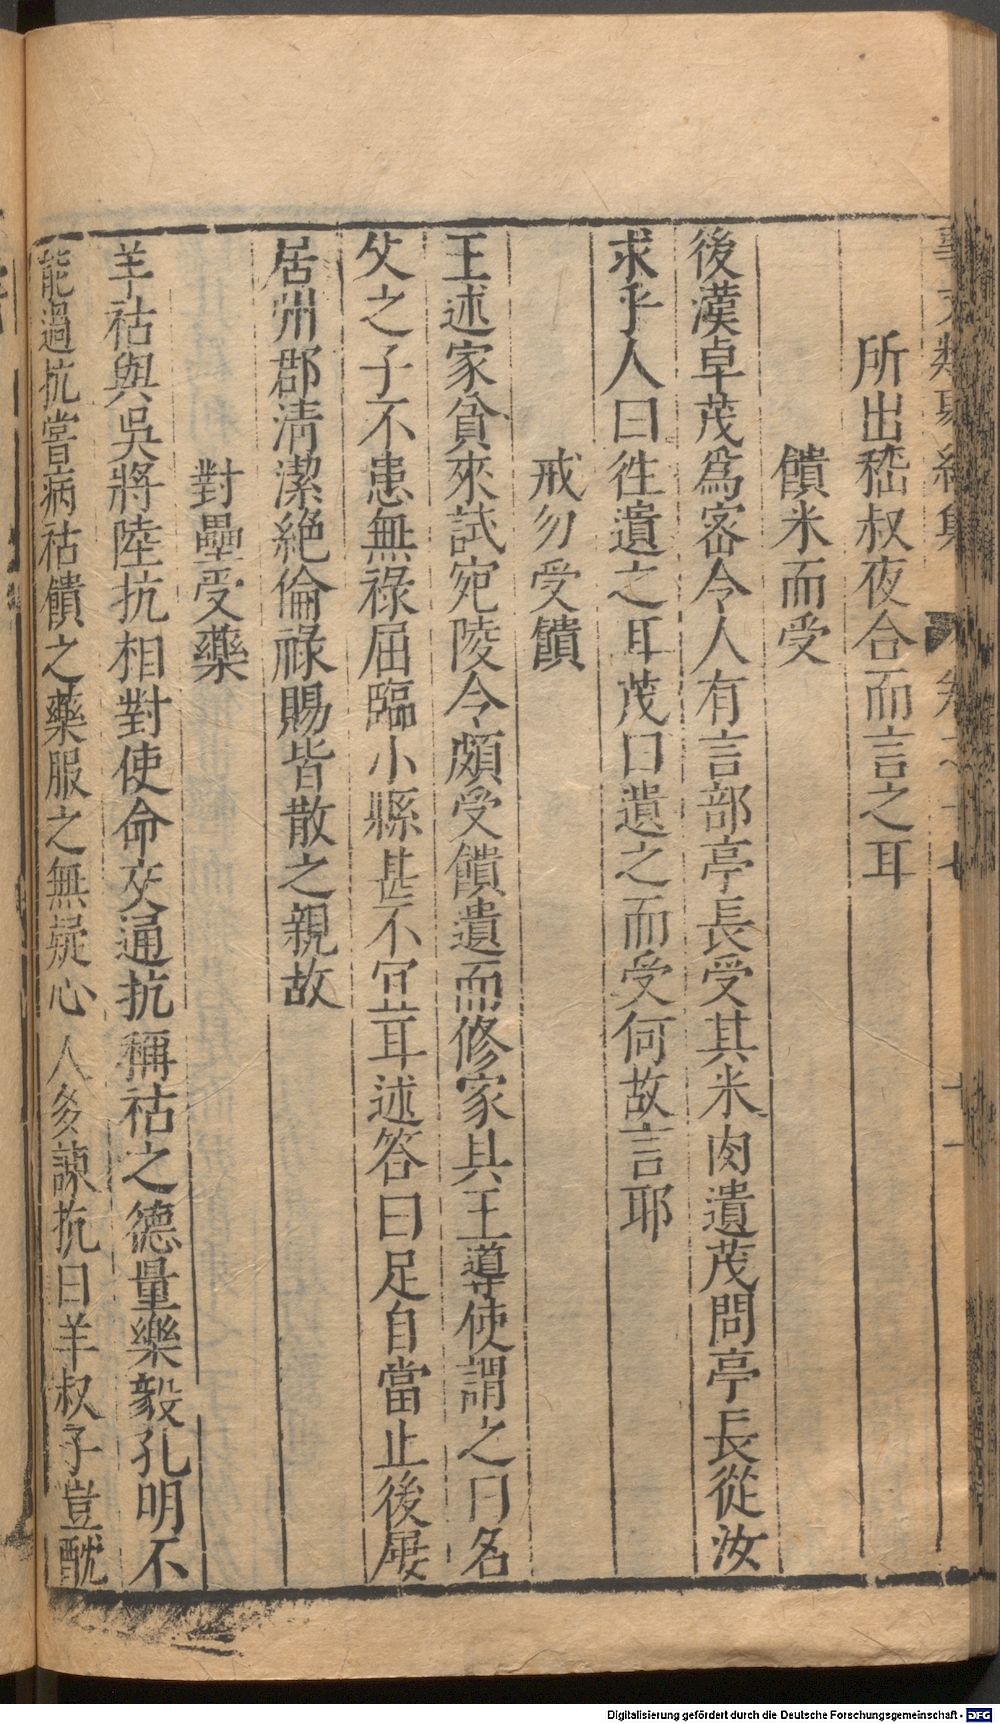 所出嵇叔夜合而言之耳
饋米而受
後漢卓茂爲密令人有言部亭長受其米肉遺茂問亭長從汝
求乎人曰往遺之耳茂曰遺之而受何故言耶
戒勿受饋
王述家貧來試宛陵令頗受饋遺而修家具王導使謂之曰名
父之子不患無祿屈臨小縣甚不宜耳述答曰足自當止後屢
居州郡清潔絶倫祿賜皆散之親故
對壘受藥
羊祜與吳將陸抗相對使命交通抗稱祜之德量樂毅孔明不
能過抗嘗病祜饋之藥服之無疑心人多諫抗曰羊叔子豈酖
Digitalisierung gefördert durch die Deutsche Forschungsgemeinschaft - DFG